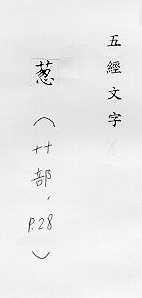 五經文字
蔥（艹部，P.28）